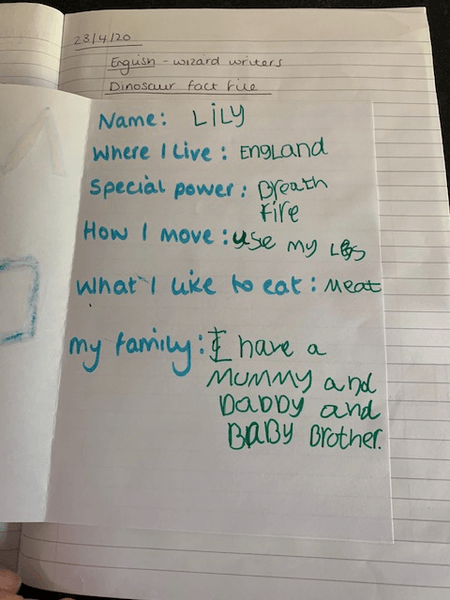 23/4/20
English - wizard writers
Dinosaur fact file
Name: LiLY
Where I live: ENGLAND
Special power: Breath
Fire
How I move: use my LEgs
What I like to eat: Meat
my family: I have a
MUMMY and
DADDY and
BABY Brother.